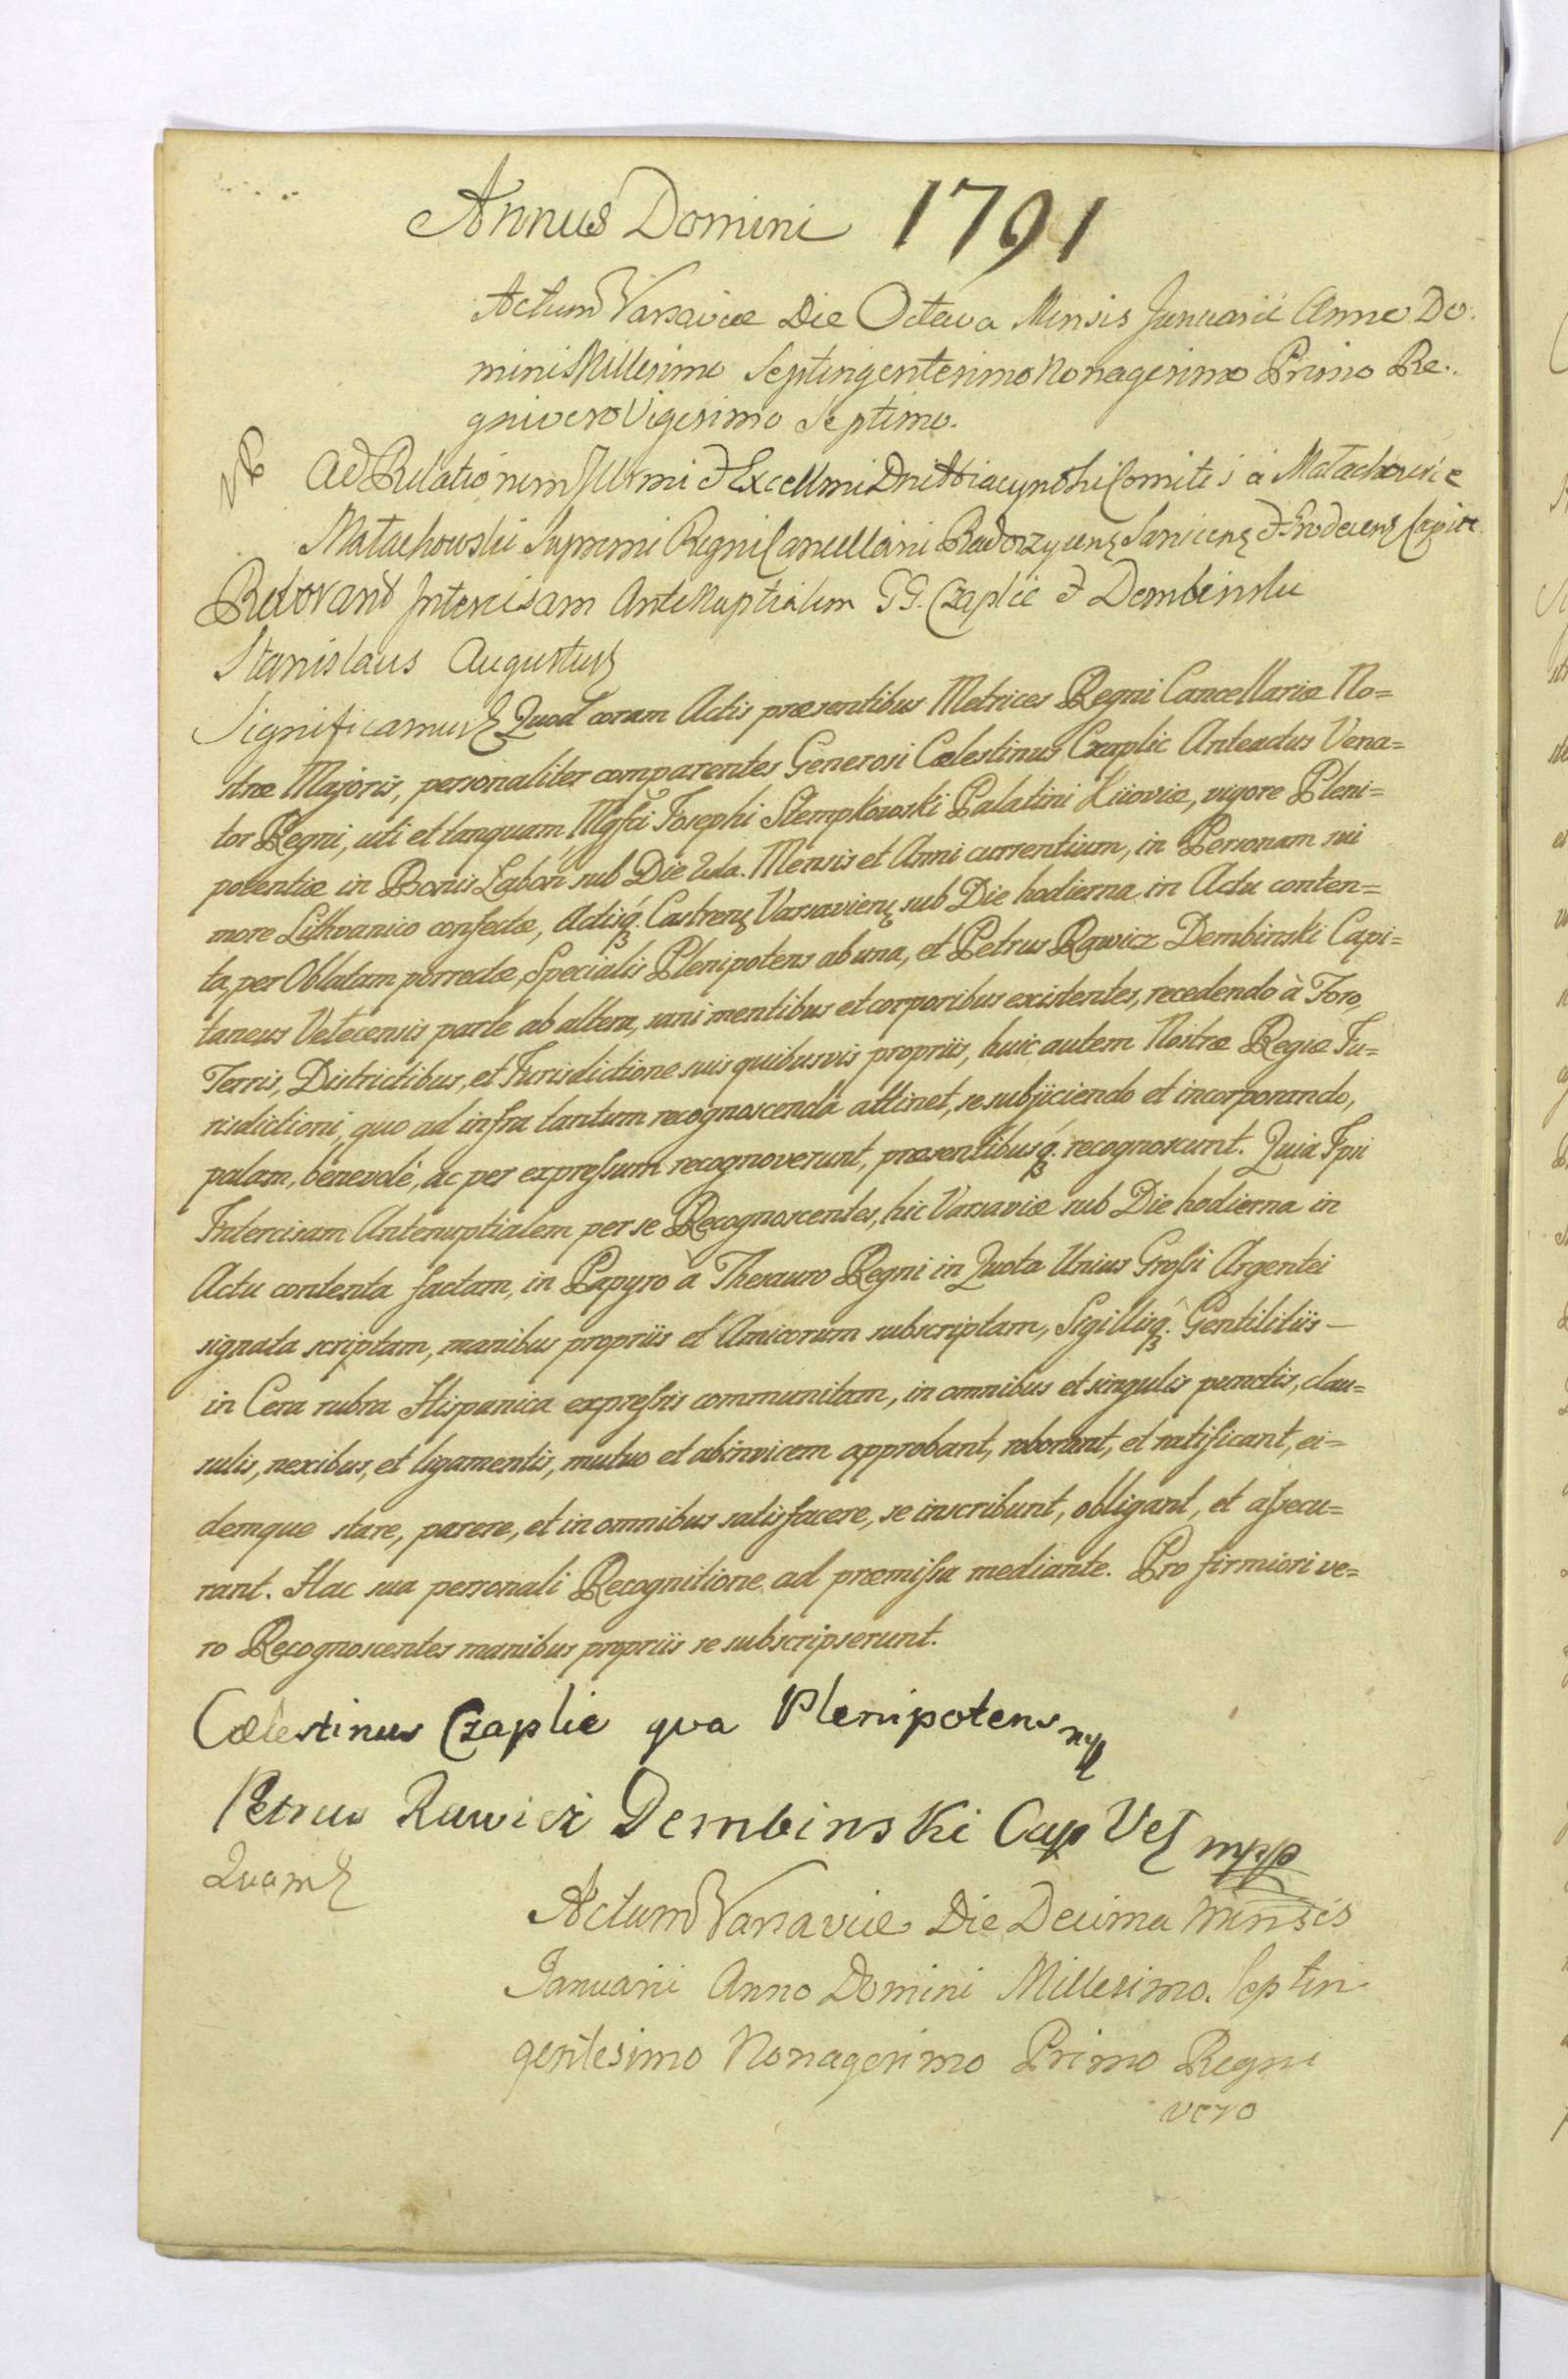 Annus Domini 1791
Actum Varsaviæ Die Octava Mensis Januarii Anno Do-
mini Millesimo Septingentesimo Nonagesimo Primo Re-
gni vero Vigesimo Septimo.
Ad Relationem Illmi & Excellmi Dni Hiacynthi Comitis à Małachowice
Małachowski Supremi Regni Cancellarii Radoszycenς Sanicenς & Grodecenς Capit
Roborant Intercisam Antenuptialem GG. Czaplic & Dembinski
Stanislaus Augustus
Significamus Quod coram Actis præsentibus Metrices Regni Cancellariæ No=
stræ Majoris, personaliter comparentes Generosi Cælestinus Czaplic Anteactus Vena=
tor Regni, uti et tanquam Mgfci Josephi Stempkowski Palatini Kiioviæ, vigore Pleni=
potentiæ in Bonis Laboń sub Die 2da. Mensis et Anni currentium, in Personam sui
more Lithvanico confectæ, Actisq́. Castrenς Varsavienς sub Die hodierna in Actu conten=
ta, per Oblatam porrectæ, Specialis Plenipotens ab una, et Petrus Rawicz Dembinski Capi=
taneus Vetecensis parte ab altera, sani mentibus et corporibus existentes, recedendo à Foro,
Terris, Districtibus, et Jurisdictione suis quibusvis propriis, huic autem Nostræ Regiæ Ju=
risdictioni, quo ad infra tantum recognoscenda attinet, se subjiciendo et incorporando,
palam, benevolè, ac per expressum recognoverunt, præsentibusq́. recognoscunt. Quia Ipsi
Intercisam Antenuptialem per se Recognoscentes, hic Varsaviæ sub Die hodierna in
Actu contenta factam, in Papyro à Thesauro Regni in Quota Unius Grossi Argentei
signata scriptam, manibus propriis et Amicorum subscriptam, Sigillisq́. Gentilitiis —
in Cera rubra Hispanica expressis communitam, in omnibus et singulis punctis, clau=
sulis, nexibus, et ligamentis, mutuo et abinvicem approbant, roborant, et ratificant, ei=
demque stare, parere, et in omnibus satisfacere, se inscribunt, obligant, et assecu=
rant. Hac sua personali Recognitione ad præmissa mediante. Pro firmiori ve=
ro Recognoscentes manibus propriis se subscripserunt.
Cælestinus Czaplic qva Plenipotens
Petrus Rawicz Dembinski Cap Veς mpp
Quam
Actum Varsaviæ Die Decima Mensis
Januarii Anno Domini Millesimo. Septin
gentesimo Nonagesimo Primo Regni
vero